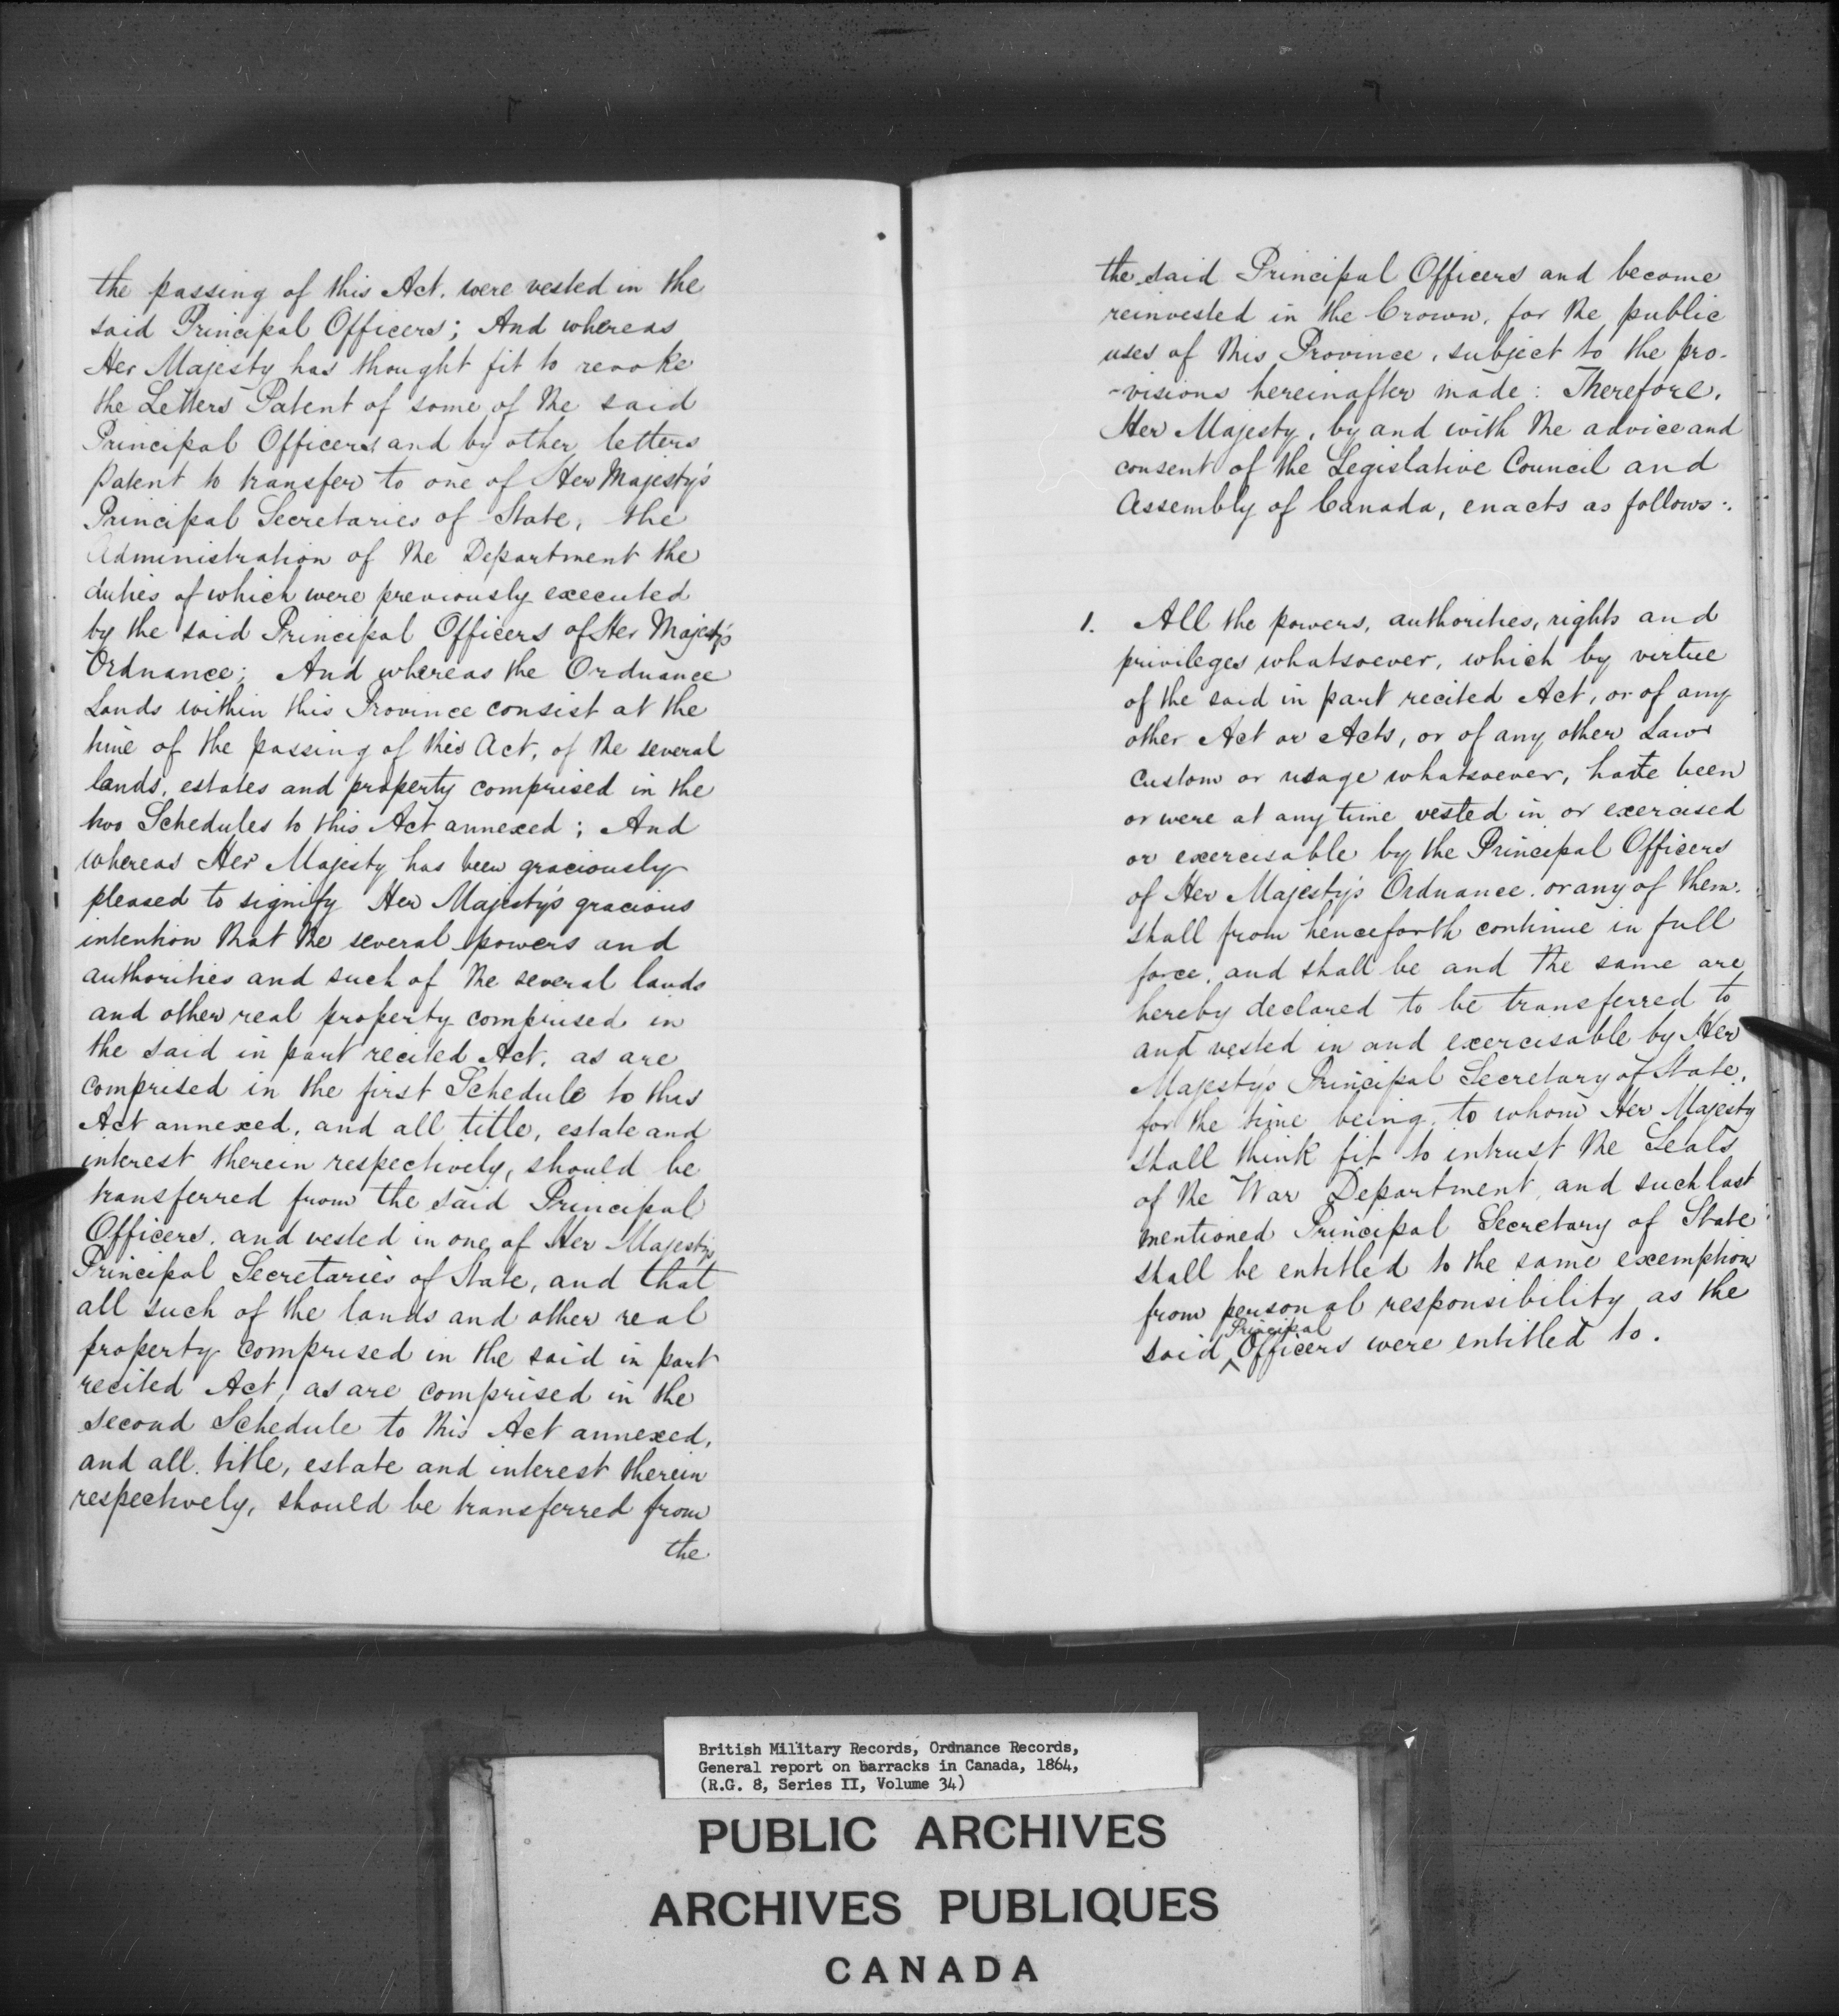 the passing of this Act, were vested in the
said Principal Officers; And whereas
Her Majesty has thought fit to revoke
the Letters Patent of some of the said
Principal Officers and by other letters
patent to transfer to one of Her Majesty's
Principal Secretaries of State, the
Administration of the Department the
duties of which were previously executed
by the said Principal Officers of Her Majesty's
Ordnance; And whereas the Ordnance
Lands within this Province consist at the
time of the passing of this Act, of the several
lands, estates and property comprised in the
two Schedules to this Act annexed; And
whereas Her Majesty has been graciously
pleased to signify Her Majesty's gracious
intention that the several powers and
authorities and such of the several lands
and other real property comprised in
the said in part recited Act, as are
comprised in the first Schedule to this
Act annexed, and all title, estate and
interest therein respectively, should be
transferred from the said Principal
Officers, and vested in one of Her Majesty's
Principal Secretaries of State, and that
all such of the lands and other real
property comprised in the said in part
recited Act, as are comprised in the
second Schedule to this Act annexed,
and all title, estate and interest therein
respectively, should be transferred from
the
the said Principal Officers and become
reinvested in the Crown, for the public
uses of this Province, subject to the pro-
-visions hereinafter made: Therefore,
Her Majesty, by and with the advice and
consent of the Legislative Council and
Assembly of Canada, enacts as follows:
1. All the powers, authorities, rights and
privileges whatsoever, which by virtue
of the said in part recited Act, or of any
other Act or Acts, or of any other Law
Custom or usage whatsoever, have been
or were at any time vested in or exercised
or exercisable by the Principal Officers
of Her Majesty's Ordnance, or any of them,
shall from henceforth continue in full
force, and shall be and the same are
hereby declared to be transferred to
and vested in and exercisable by Her
Majesty's Principal Secretary of State,
for the time being, to whom Her Majesty
shall think fit to intrust the Seals
of the War Department, and such last
mentioned Principal Secretary of State
shall be entitled to the same exemption
from personal responsibility as the
said Principal Officers were entitled to.
British Military Records, Ordnance Records,
General report on barracks in Canada, 1864,
(R.G. 8, Series II, Volume 34)
PUBLIC ARCHIVES
ARCHIVES PUBLIQUES
CANADA